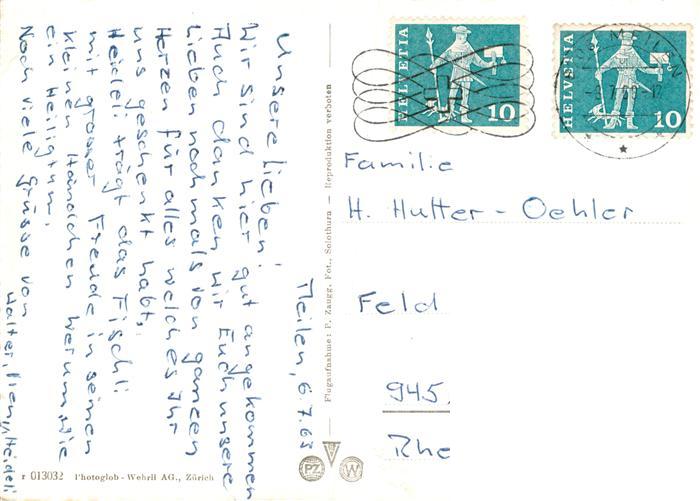 Meilen, 6.7.63
Unsere Lieben!
Wir sind hier gut angekommen
Auch danken wir Euch unsere
Lieben nochmals von ganzen
Herzen für alles welches Ihr
uns geschenkt habt.
Heideli trägt das Fischli
mit grosser Freude in seinen
kleinen Händchen herum, wie
ein Heiligtum.
Noch viele Grüsse von
Walter, Heideli
HELVETIA
10
HELVETIA
10
MEILEN
Familie
H. Hutter-Oehler
Feld
945.
Rhe
Flugaufnahme: P. Zaugg, Fot., Solothurn — Reproduktion verboten
r 013032 Photoglob-Wehrli AG., Zürich
PZ
W